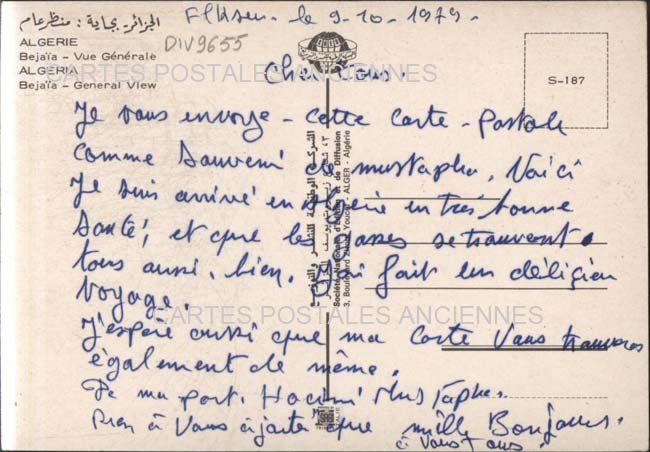 الجزائر - بجاية : منظر عام
ALGERIE
Bejaïa – Vue Générale
ALGERIA
Bejaïa – General View
DIV9655
le 9-10-1979.
S-187
CARTES POSTALES ANCIENNES
Cher Tous.
Je vous envoye - cette Carte - postale
comme Souvenir de mustapha. Voici
Je suis arrivé en Algérie en très bonne
Santé, et que les gosses se trauvent
tous aussi, bien. J'ai fait un déligien
Voyage.
CARTES POSTALES ANCIENNES
J'espère aussi que ma Carte Vous trauveras
également de même.
De ma part. Hacini Mustapha.
Rien à Vous ajaité que mille Bonjours.
à Vous tous.
الشركة الوطنية للنشر والتوزيع
Société Nationale d'Edition et de Diffusion
3, Boulevard Zirout Youcef - ALGER - Algérie